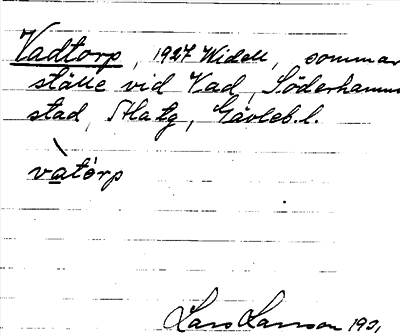 Vadtorp, 1927 Widell, sommar
ställe vid Vad, Söderhamns
stad, Hlatg, Gävleb. l.
vatorp
Lars Larsson 1901